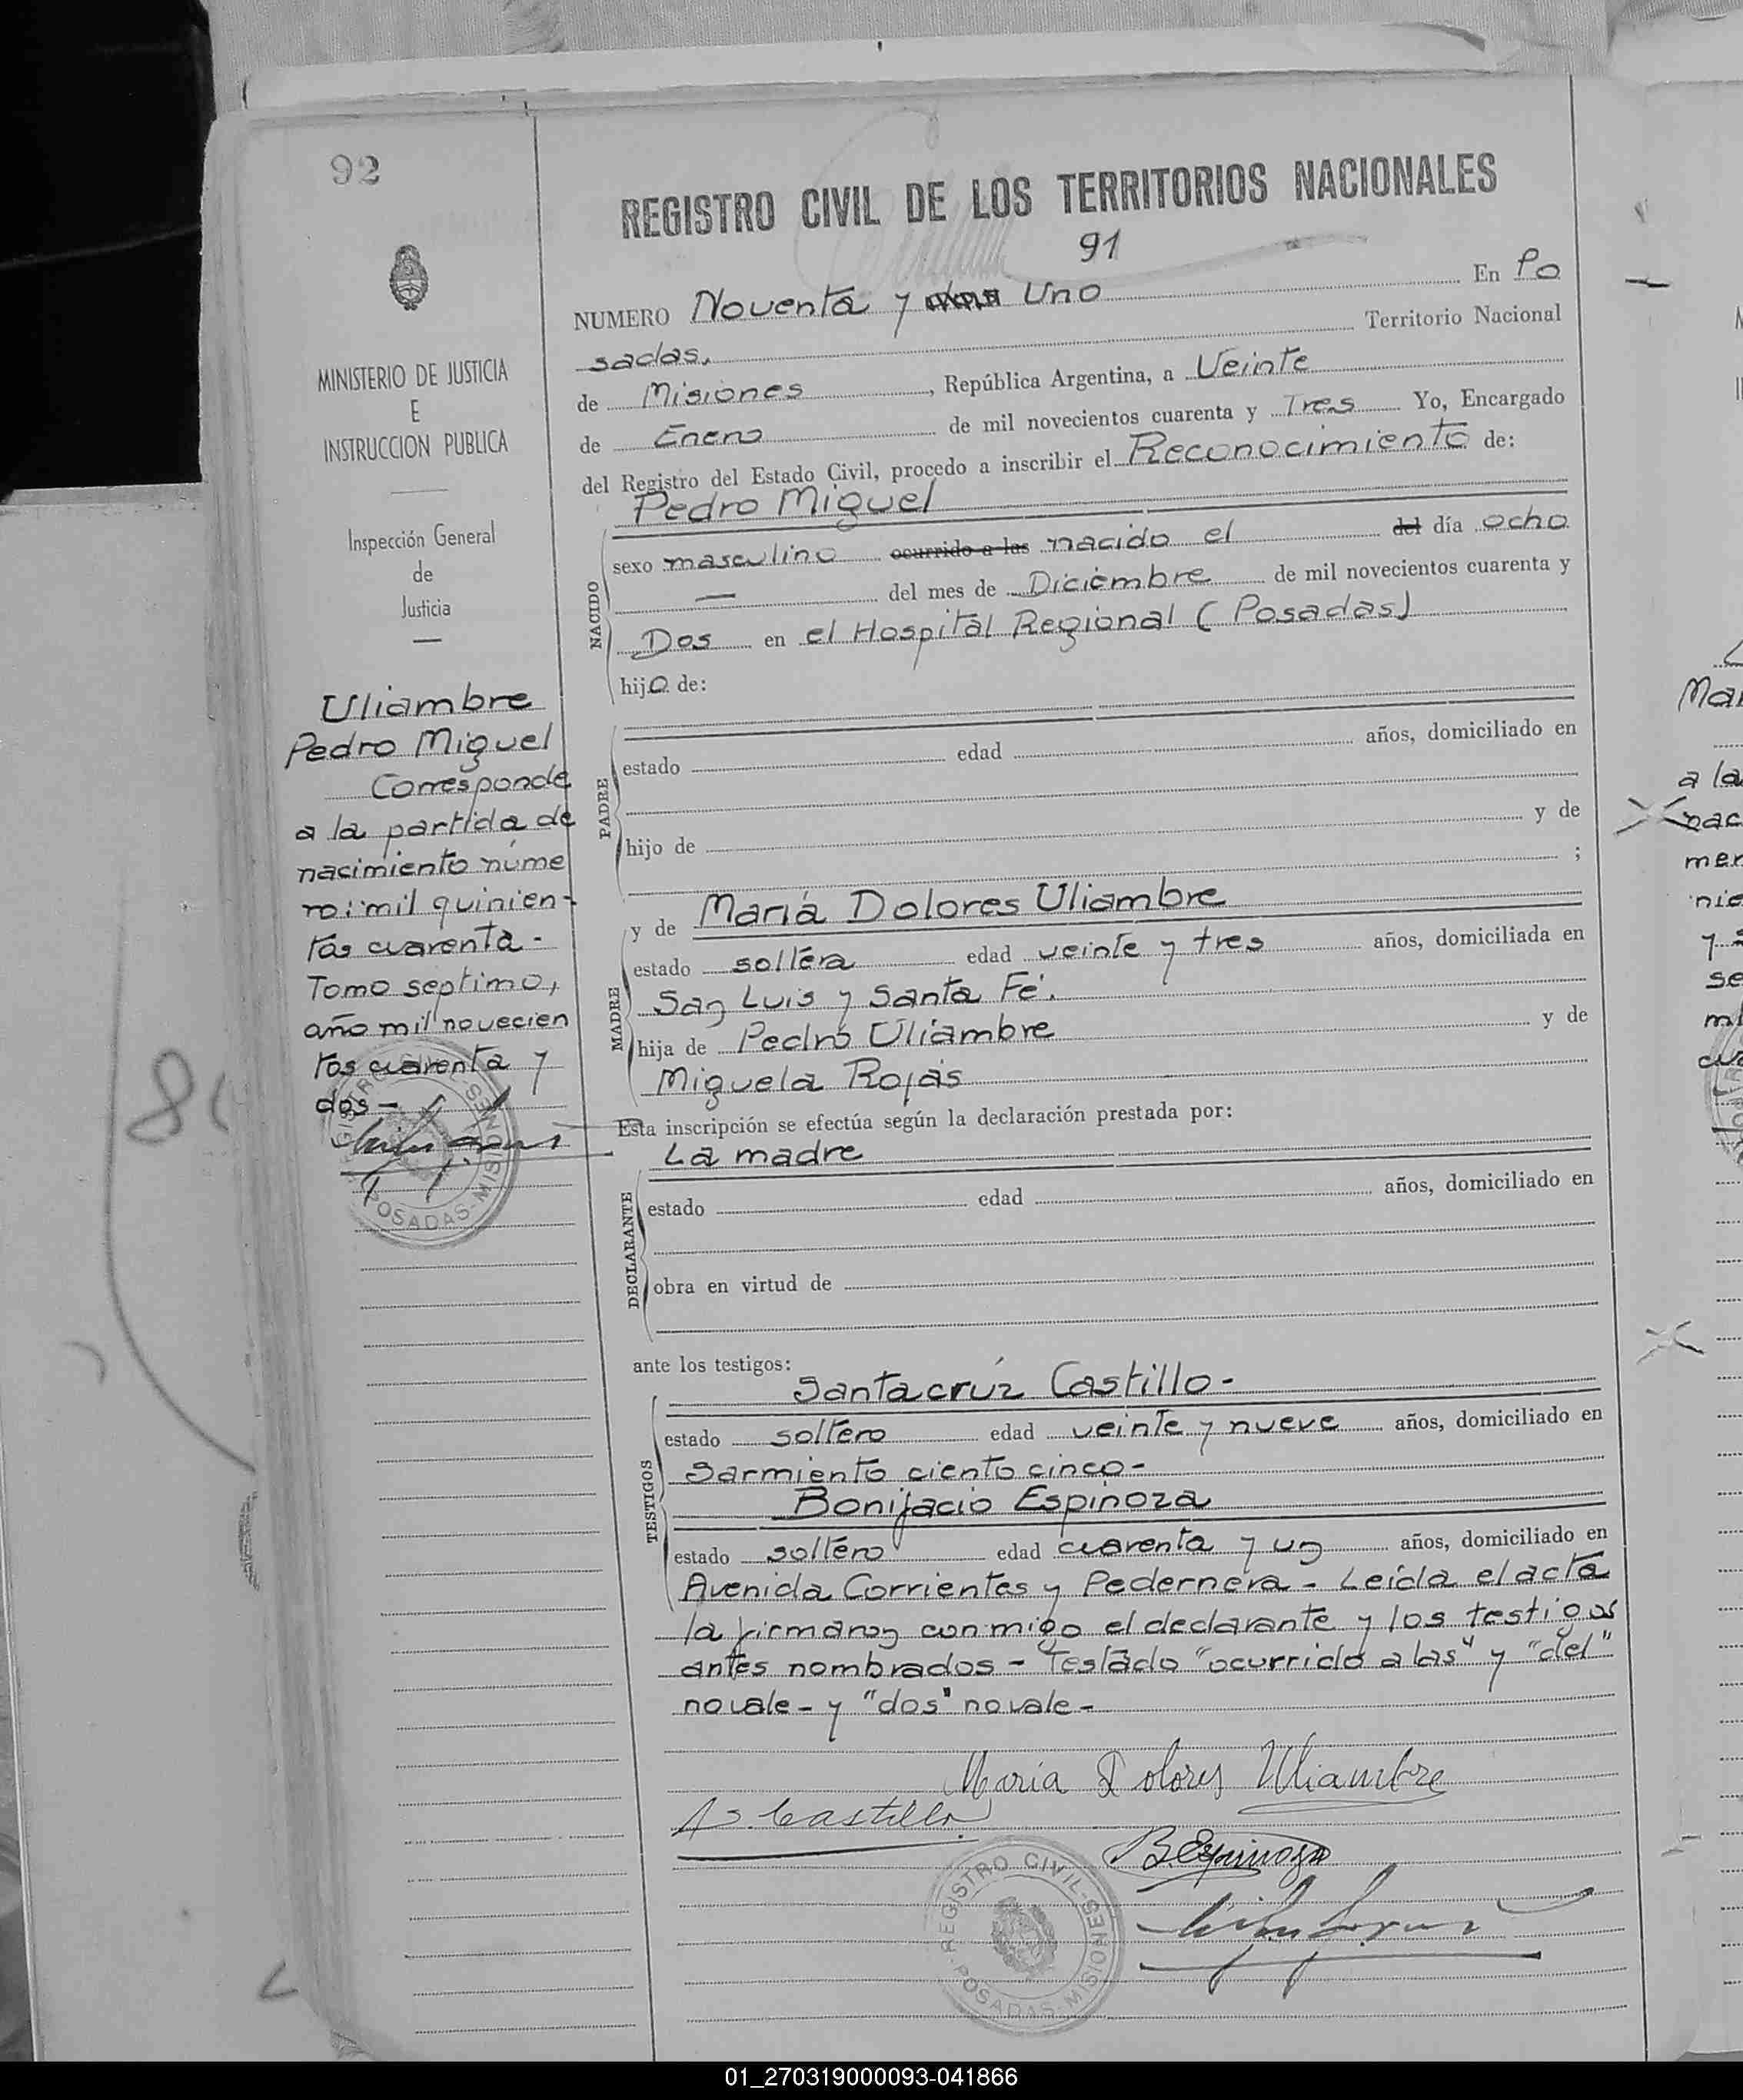 92
REGISTRO CIVIL DE LOS TERRITORIOS NACIONALES
91
NUMERO Noventa y dos Uno En Po
sadas. Territorio Nacional
de Misiones, República Argentina, a Veinte
de Enero de mil novecientos cuarenta y Tres Yo, Encargado
del Registro del Estado Civil, procedo a inscribir el Reconocimiento de:
Pedro Miguel
NACIDO
sexo masculino ocurrido a las nacido el del día ocho
— del mes de Diciembre de mil novecientos cuarenta y
Dos en el Hospital Regional (Posadas)
hijo de:
PADRE
estado edad años, domiciliado en
hijo de y de
;
MADRE
y de María Dolores Uliambre
estado soltera edad veinte y tres años, domiciliada en
San Luis y Santa Fé.
hija de Pedro Uliambre y de
Miguela Rojas
Esta inscripción se efectúa según la declaración prestada por:
La madre
DECLARANTE
estado edad años, domiciliado en
obra en virtud de
ante los testigos:
TESTIGOS
Santacrúz Castillo-
estado soltero edad veinte y nueve años, domiciliado en
Sarmiento ciento cinco-
Bonifacio Espinoza
estado soltero edad cuarenta y un años, domiciliado en
Avenida Corrientes y Pedernera - Leída el acta
la firmaron conmigo el declarante y los testigos
antes nombrados - Testado "ocurrido a las" y "del"
no vale - y "dos" no vale -
María Dolores Uliambre
S. Castillo
B. Espinoza
REGISTRO CIVIL
POSADAS-MISIONES
MINISTERIO DE JUSTICIA
E
INSTRUCCION PUBLICA
Inspección General
de
Justicia
Uliambre
Pedro Miguel
Corresponde
a la partida de
nacimiento núme
ro: mil quinien-
tas cuarenta -
Tomo septimo,
año mil novecien
tos cuarenta y
dos -
POSADAS-MISIONES
Mar
a la
nac
mer
nie
y
se
01_270319000093-041866